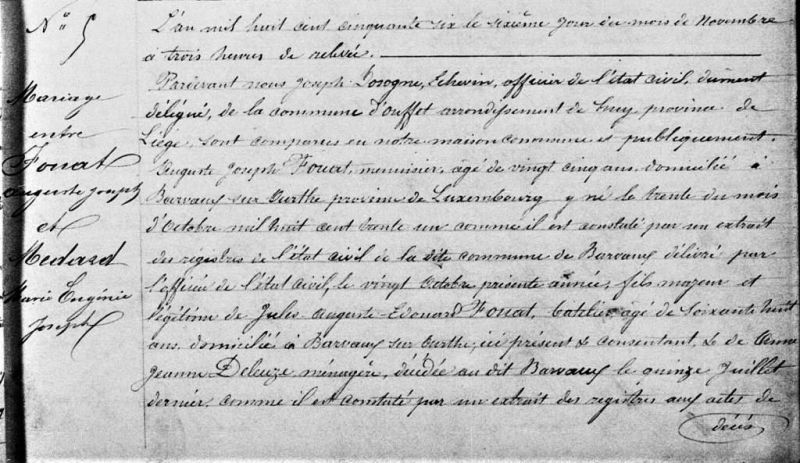 N° 5
Mariage
entre
Fouat
Auguste Joseph
et
Medard
Marie Eugénie
Joseph
L'an mil huit cent cinquante six le sixième jour du mois de Novembre
à trois heures de relevé.
Pardevant nous Joseph Losogne, Echevin, officier de l'état civil, dument
délégué, de la commune d'ouffet arrondissement de huy province de
Liège, sont comparus en notre maison commune et publiquement.
Auguste Joseph Fouat, meunier, agé de vingt cinq ans, domicilié à
Barvaux sur Ourthe province de Luxembourg y né le trente du mois
d'Octobre mil huit cent trente un comme il est constaté par un extrait
des registres de l'état civil de la dite commune de Barvaux délivré par
l'officier de l'état civil, le vingt Octobre présente année, fils majeur et
légitime de Jules Auguste Edouard Fouat, batelier agé de soixante huit
ans, domicilié à Barvaux sur Ourthe, ici présent & consentant, & de Anne
Jeanne Deleuze ménagère, décédée au dit Barvaux le quinze Juillet
dernier, comme il est constaté par un extrait des registres aux actes de
décès